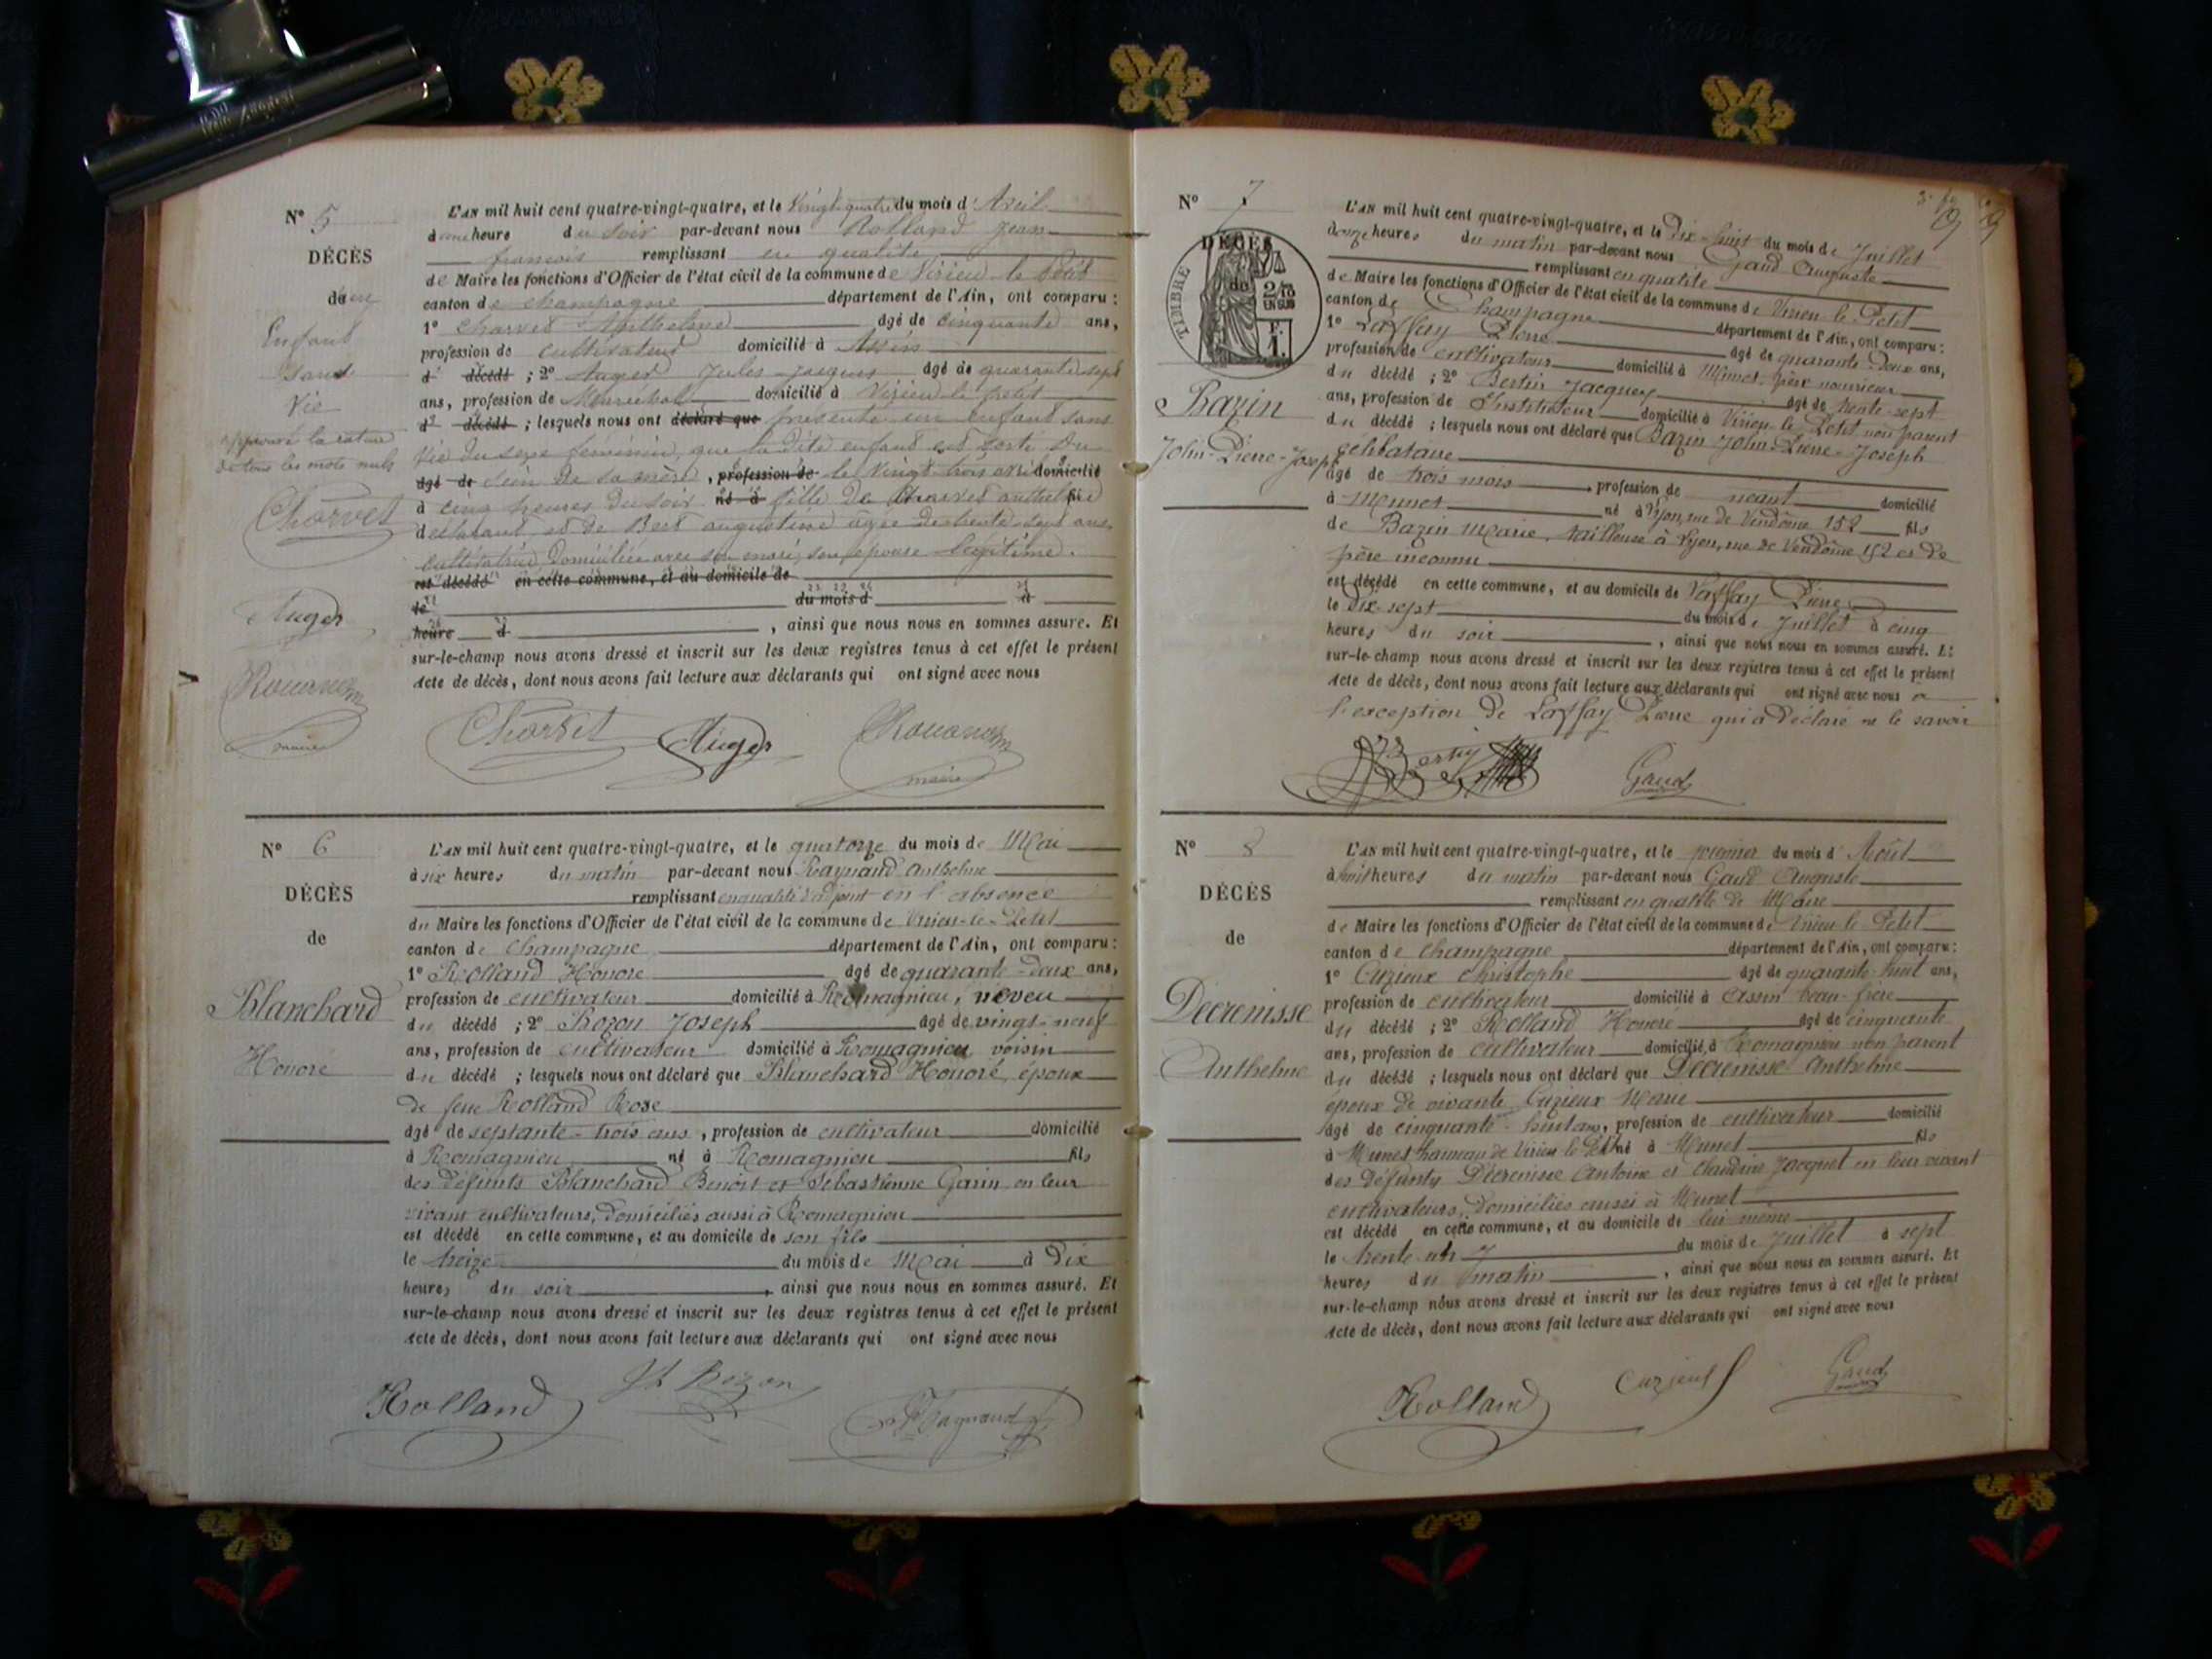 N° 5
DÉCÈS
Enfant
sans
Vie
Approuvé la rature
de tous les mots nuls
Charvet
Auger
maire
L'AN mil huit cent quatre-vingt-quatre, et le vingt-quatre du mois d'Avril
à une heure du soir par-devant nous Rolland Jean
françois remplissant en qualité
de Maire les fonctions d'Officier de l'état civil de la commune de Virieu le Petit
canton de champagne département de l'Ain, ont comparu :
1° Charvet Anthelme âgé de cinquante ans,
profession de cultivateur domicilié à Assin
d décédé ; 2° Auger Jules-Jacques âgé de quarante sept
ans, profession de Maréchal domicilié à Virieu le petit
d décédé ; lesquels nous ont déclaré que présenté un enfant sans
vie du sexe féminin, que la dite enfant est sorti du
âgé de sein de sa mère, profession de le vingt trois avril domicilié
à cinq heures du soir né à fille de Charvet anthelme
déclarant et de Bect augustine âgée de trente sept ans
cultivatrice, domiciliée avec son mari, son épouse légitime.
est décédé en cette commune, et au domicile de
le du mois d à
heure d , ainsi que nous nous en sommes assuré. Et
sur-le-champ nous avons dressé et inscrit sur les deux registres tenus à cet effet le présent
Acte de décès, dont nous avons fait lecture aux déclarants qui ont signé avec nous
Charvet Auger
maire
N° 6
DÉCÈS
de
Blanchard
Honoré
L'AN mil huit cent quatre-vingt-quatre, et le quatorze du mois de Mai
à six heures du matin par-devant nous Raynaud Anthelme
remplissant en qualité d'adjoint en l'absence
du Maire les fonctions d'Officier de l'état civil de la commune de Virieu-le-Petit
canton de Champagne département de l'Ain, ont comparu :
1° Rolland Honoré âgé de quarante-deux ans,
profession de cultivateur domicilié à Romagnieu, neveu
du décédé ; 2° Bozon Joseph âgé de vingt-neuf
ans, profession de cultivateur domicilié à Romagnieu voisin
du décédé ; lesquels nous ont déclaré que Blanchard Honoré, époux
de feue Rolland Rose
âgé de septante-trois ans, profession de cultivateur domicilié
à Romagnieu né à Romagnieu fils
des défunts Blanchard Benoit et Sébastienne Garin en leur
vivant cultivateurs, domiciliés aussi à Romagnieu
est décédé en cette commune, et au domicile de son fils
le treize du mois de Mai à Dix
heures du soir , ainsi que nous nous en sommes assuré. Et
sur-le-champ nous avons dressé et inscrit sur les deux registres tenus à cet effet le présent
Acte de décès, dont nous avons fait lecture aux déclarants qui ont signé avec nous
Rolland Bozon Raynaud
N° 7
DÉCÈS
de
TIMBRE
2/10
EN SUS
F.
1.
Bazin
John-Pierre-Joseph
L'AN mil huit cent quatre-vingt-quatre, et le dix-huit du mois de Juillet
à onze heures du matin par-devant nous Gaud Auguste
remplissant en qualité
de Maire les fonctions d'Officier de l'état civil de la commune de Virieu-le-Petit
canton de Champagne département de l'Ain, ont comparu :
1° Laffay Pierre âgé de quarante-deux ans,
profession de cultivateur domicilié à Munet, père nourricier
du décédé ; 2° Bertin Jacques âgé de trente-sept
ans, profession de Instituteur domicilié à Virieu-le-Petit non parent
du décédé ; lesquels nous ont déclaré que Bazin John-Pierre-Joseph
célibataire
âgé de trois mois, profession de néant domicilié
à Munet né à Lyon, rue de Vendôme 152 fils
de Bazin Marie, tailleuse à Lyon, rue de Vendôme 152 et de
père inconnu
est décédé en cette commune, et au domicile de Laffay Pierre
le dix-sept du mois de Juillet à cinq
heures du soir , ainsi que nous nous en sommes assuré. Et
sur-le-champ nous avons dressé et inscrit sur les deux registres tenus à cet effet le présent
Acte de décès, dont nous avons fait lecture aux déclarants qui ont signé avec nous à
l'exception de Laffay Pierre qui a déclaré ne le savoir
Bertin Gaud
N° 8
DÉCÈS
de
Décrenisse
Anthelme
L'AN mil huit cent quatre-vingt-quatre, et le premier du mois d'Août
à huit heures du matin par-devant nous Gaud Auguste
remplissant en qualité de Maire
de Maire les fonctions d'Officier de l'état civil de la commune de Virieu-le-Petit
canton de champagne département de l'Ain, ont comparu :
1° Cuzieux Christophe âgé de quarante-huit ans,
profession de cultivateur domicilié à Assin beau-frère
du décédé ; 2° Rolland Honoré âgé de cinquante
ans, profession de cultivateur domicilié à Romagnieu non parent
du décédé ; lesquels nous ont déclaré que Décrenisse Anthelme
époux de vivante Cuzieux Marie
âgé de cinquante-huit ans, profession de cultivateur domicilié
à Munet hameau de Virieu le Petit né à Munet fils
des défunts Décrenisse Antoine et Claudine Jacquet en leur vivant
cultivateurs, domiciliés aussi à Munet
est décédé en cette commune, et au domicile de lui-même
le trente-un du mois de Juillet à sept
heures du matin , ainsi que nous nous en sommes assuré. Et
sur-le-champ nous avons dressé et inscrit sur les deux registres tenus à cet effet le présent
Acte de décès, dont nous avons fait lecture aux déclarants qui ont signé avec nous
Rolland Cuzieux Gaud